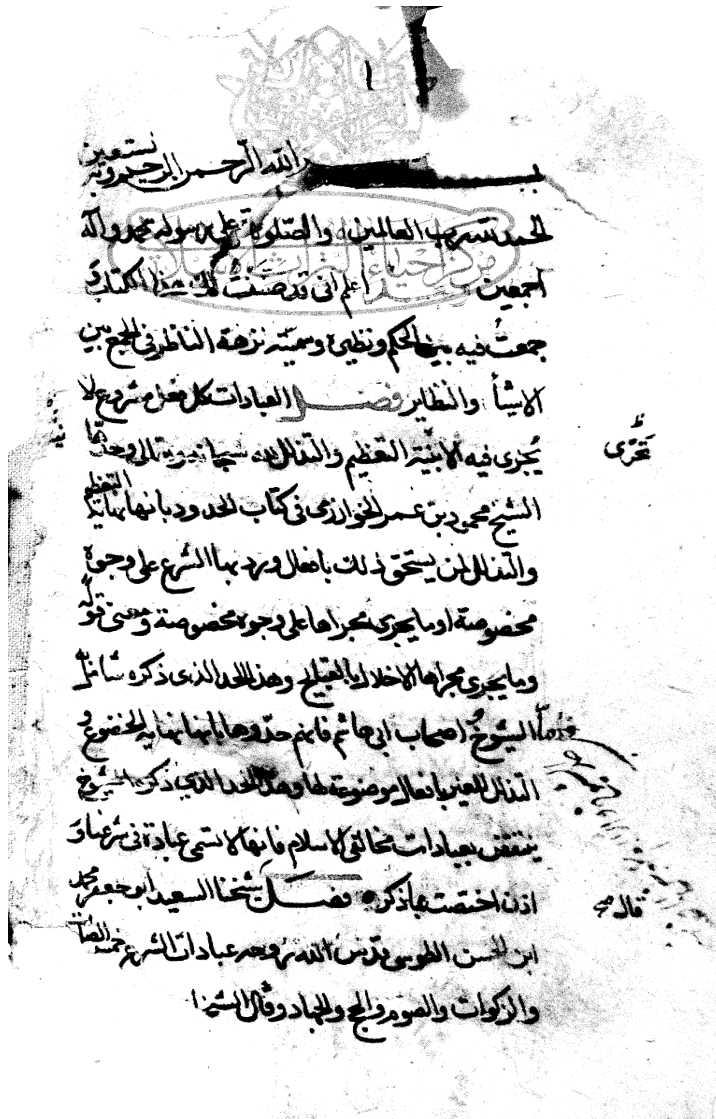 ١
بسم الله الرحمن الرحيم وبه نستعين
الحمد لله رب العالمين والصلوة على رسوله محمد وآله
اجمعين اعلم انى قد صنفت لك هذا الكتاب و
جمعت فيه بين الحكم ونظيره وسميته نزهة الناظر فى الجمع بين
الاشبا والنظاير فصل العبادات كل فعل مشروع لا
يجزى فيه الا بنية التعظيم والتذلل لله سبحانه وتعالى وحدها
الشيخ محمود بن عمر الخوارزمى فى كتاب الحدود بانها نهاية التعظيم
والتذلل لمن يستحق ذلك بافعال ورد بها الشرع على وجوه
مخصوصة او ما يجرى مجراها على وجوه مخصوصة ومعنى قوله
وما يجرى مجراها الاخلال بالقبايح وهذا الحد الذى ذكره شامل
فاما الشيوخ اصحاب ابى هاشم فانهم حدوها بانها نهاية الخضوع و
التذلل للغير بافعال موضوعة لها وهذا الحد الذى ذكره الشيوخ
ينتقض بعبادات مخالفى الاسلام فانها لا تسمى عبادة فى شرعنا و
اذن اختصت بما ذكره فصل شيخنا السعيد ابو جعفر محمد
ابن الحسن الطوسى قدس الله روحه عبادات الشرع خمس الصلوات
والزكوات والصوم والحج والجهاد وقال الشيخ
نية
تجزى
قال صح
مركز احياء التراث الاسلامي